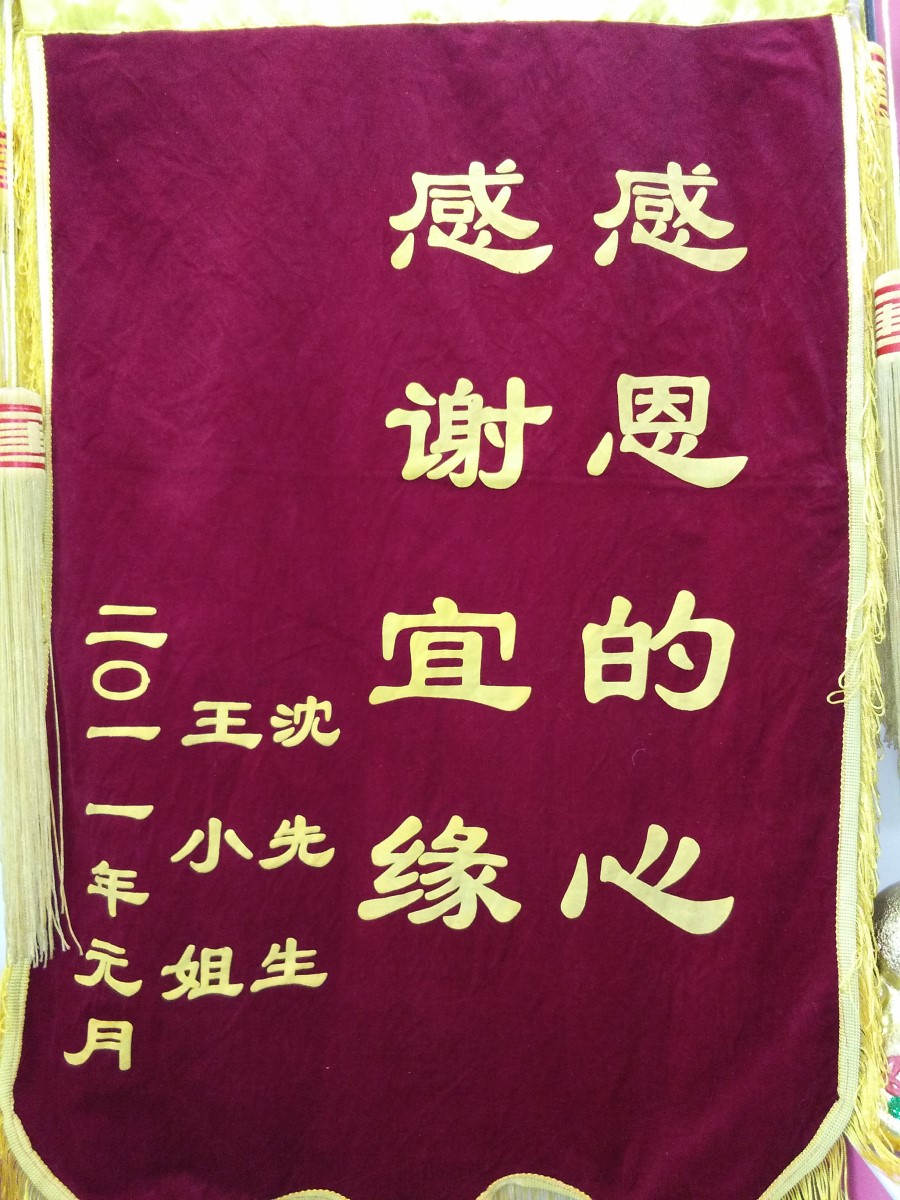 感恩的心
感谢宜缘
沈先生
王小姐
二〇一一年元月